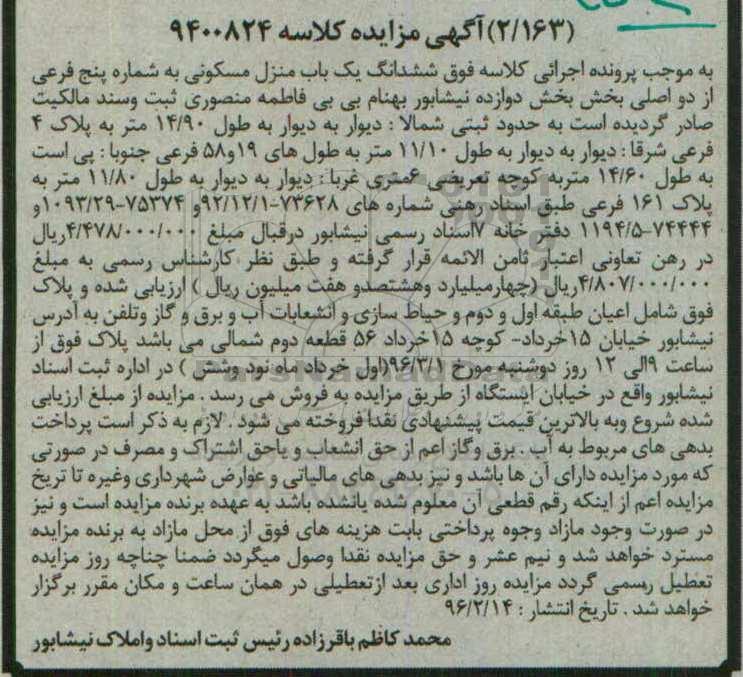 (۲/۱۶۳) آگهی مزایده کلاسه ۹۴۰۰۸۲۴
به موجب پرونده اجرائی کلاسه فوق ششدانگ یک باب منزل مسکونی به شماره پنج فرعی
از دو اصلی بخش بخش دوازده نیشابور بهنام بی بی فاطمه منصوری ثبت وسند مالکیت
صادر گردیده است به حدود ثبتی شمالا : دیوار به دیوار به طول ۱۴/۹۰ متر به پلاک ۴
فرعی شرقا : دیوار به دیوار به طول ۱۱/۱۰ متر به طول های ۱۹و۵۸ فرعی جنوبا : پی است
به طول ۱۴/۶۰ متربه کوچه تعریضی ۶متری غربا : دیوار به دیوار به طول ۱۱/۸۰ متر به
پلاک ۱۶۱ فرعی طبق اسناد رهنی شماره های ۷۳۶۲۸-۹۲/۱۲/۱و ۷۵۳۷۴-۱۰۹۳/۲۹و
۷۴۴۴۴-۱۱۹۴/۵ دفتر خانه ۷اسناد رسمی نیشابور درقبال مبلغ ۴/۴۷۸/۰۰۰/۰۰۰ریال
در رهن تعاونی اعتبار ثامن الائمه قرار گرفته و طبق نظر کارشناس رسمی به مبلغ
۴/۸۰۷/۰۰۰/۰۰۰ریال (چهارمیلیارد وهشتصدو هفت میلیون ریال ) ارزیابی شده و پلاک
فوق شامل اعیان طبقه اول و دوم و حیاط سازی و انشعابات آب و برق و گاز وتلفن به آدرس
نیشابور خیابان ۱۵خرداد- کوچه ۱۵خرداد ۵۶ قطعه دوم شمالی می باشد پلاک فوق از
ساعت ۹الی ۱۲ روز دوشنبه مورخ ۹۶/۳/۱(اول خرداد ماه نود وشش ) در اداره ثبت اسناد
نیشابور واقع در خیابان ایستگاه از طریق مزایده به فروش می رسد . مزایده از مبلغ ارزیابی
شده شروع وبه بالاترین قیمت پیشنهادی نقدا فروخته می شود . لازم به ذکر است پرداخت
بدهی های مربوط به آب . برق وگاز اعم از حق انشعاب و یاحق اشتراک و مصرف در صورتی
که مورد مزایده دارای آن ها باشد و نیز بدهی های مالیاتی و عوارض شهرداری وغیره تا تریخ
مزایده اعم از اینکه رقم قطعی آن معلوم شده یانشده باشد به عهده برنده مزایده است و نیز
در صورت وجود مازاد وجوه پرداختی بابت هزینه های فوق از محل مازاد به برنده مزایده
مسترد خواهد شد و نیم عشر و حق مزایده نقدا وصول میگردد ضمنا چناچه روز مزایده
تعطیل رسمی گردد مزایده روز اداری بعد ازتعطیلی در همان ساعت و مکان مقرر برگزار
خواهد شد . تاریخ انتشار : ۹۶/۲/۱۴
محمد کاظم باقرزاده رئیس ثبت اسناد واملاک نیشابور